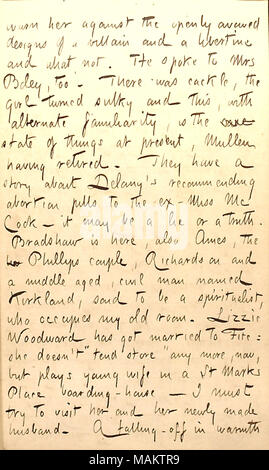 warn her against the openly avowed
designs of a villain and a libertine
and what not. He spoke to Mrs
Boley, too. There was cackle, the
girl turned sulky and this, with
alternate familiarity, is the
state of things at present, Mullen
having retired. They have a
story about Delany's recommending
abortion pills to the ex-Miss Mc
Cook — it may be a lie or a truth.
Bradshaw is here, also Ames, the
Phillips couple, Richardson and
a middle aged, civil man named
Kirkland, said to be a spiritualist,
who occupies my old room. Lizzie
Woodward has got married to Fite:
she doesn't "tend store" any more, now,
but plays young wife in a St Marks
Place boarding-house — I must
try to visit her and her newly made
husband. A falling-off in warmth
alamy
Image ID: MAKTR9
www.alamy.com